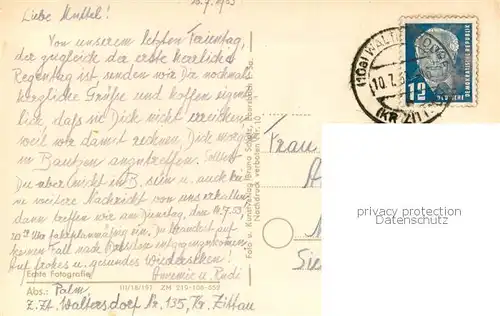 10.7.1953
Liebe Muttel!
Von unserem letzten Ferientag,
der zugleich der erste herrliche
Regentag ist senden wir Dir nochmals
herzliche Grüße und hoffen eigent-
lich, daß sie Dich nicht erreichen
weil wir damit rechnen, Dich morgen
in Bautzen anzutreffen. Solltest
Du aber nicht in B. sein u. auch kei-
ne weitere Nachricht von uns erhalten,
dann treffen wir am Dienstag, den 14.7.53
Uhr fahrplanmäßig ein. Du brauchst auf
keinen Fall nach entgegenkommen.
Auf frohes u. gesundes Wiedersehen!
Annemie u. Rudi
Echte Fotografie
III/18/197 ZM 219-108-052
Abs.: Palm
z. Zt. Waltersdorf Nr. 135, Kr. Zittau
Foto u. Kunstverlag Bruno Scholz, Ebersbach i. Sa.
Nachdruck verboten Nr. 10
(10a) WALTERSDORF
10.7.5
(KR ZITTAU)
12
DEUTSCHE
DEMOKRATISCHE REPUBLIK
Frau
protected property
www.oldthing.de